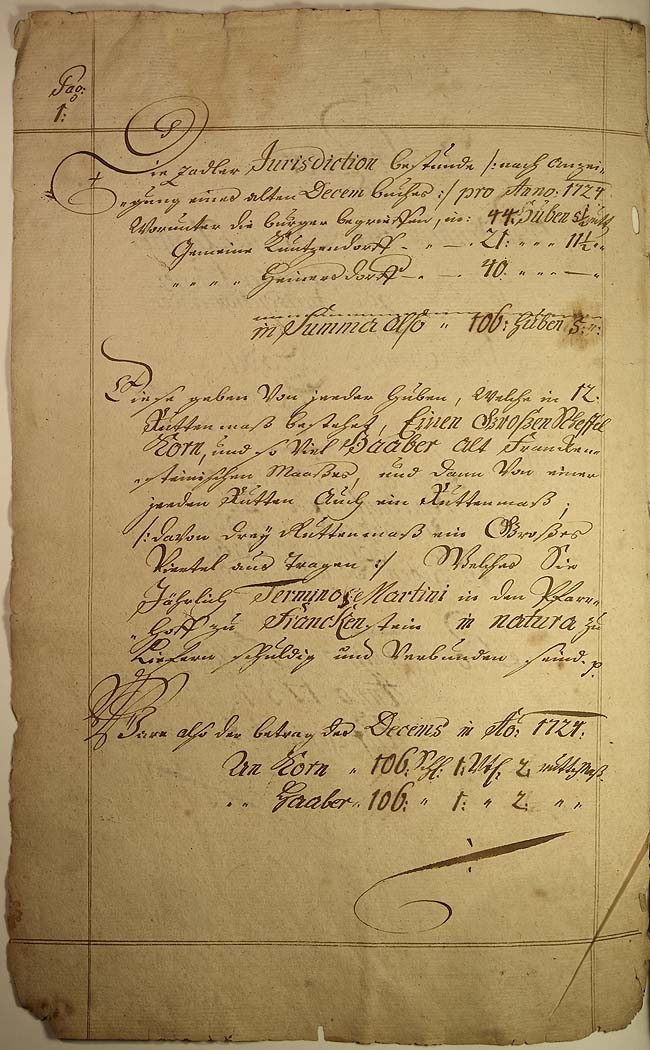 Pag:
1:
Die Zadler Jurisdiction bestunde /: nach Anzei-
-gung eines alten Decem buches :/ pro Anno: 1724.
Worunter die burger begrieffen, in: 44. Huben 5½ rutt
Gemeine Kuntzendorff - " - 21: " " " 11½ "
" " " " Heinersdorff - " - 40. " " " — "
in Summa also " 106: Huben 5: ":
Diese geben Von jeeder Huben, Welche in 12.
Ruttenmaß bestehet, Einen Großen Scheffel
Korn, und so Viel Haaber Alt Francken-
-steinischen Maaßes, und dann Von einer
jeeden Rutten Auch ein Ruttenmaß;
/: davon drey Ruttenmaß ein Großes
Viertel aus tragen :/ Welches Sie
Jährlich Termino S. Martini in den Pfarr-
-Hoff zu Franckenstein in natura zu
Liefern schuldig und Verbunden seind. p.
Ware also der betrag des Decems in Ao: 1724.
An Korn " 106: Schl: 1: Vtl. 2. ruttmaß.
" " Haaber " 106: " 1: " 2. " "